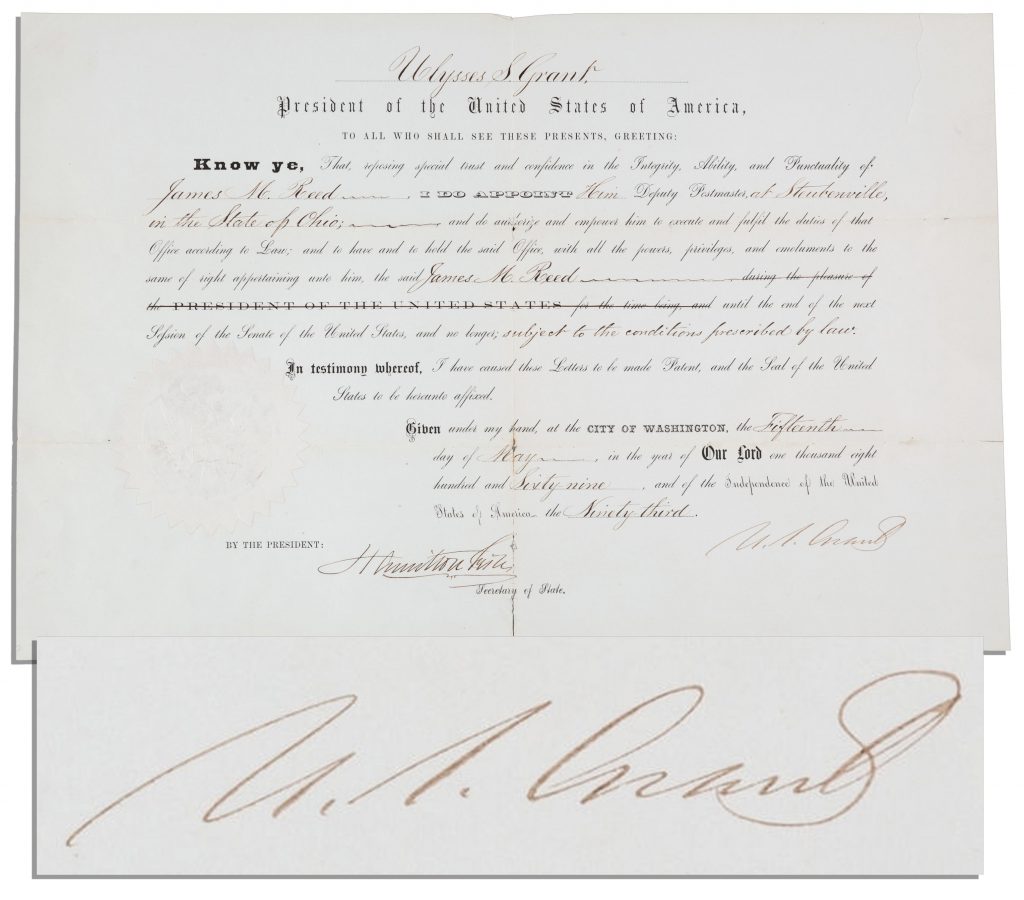 Ulysses S. Grant,
President of the United States of America,
TO ALL WHO SHALL SEE THESE PRESENTS, GREETING:
Know ye, That, reposing special trust and confidence in the Integrity, Ability, and Punctuality of
James M. Reed, I DO APPOINT Him Deputy Postmaster, at Steubenville,
in the State of Ohio; and do authorize and empower him to execute and fulfil the duties of that
Office according to Law; and to have and to hold the said Office, with all the powers, privileges, and emoluments to the
same of right appertaining unto him, the said James M. Reed during the pleasure of
the PRESIDENT OF THE UNITED STATES for the time being, and until the end of the next
Session of the Senate of the United States, and no longer; subject to the conditions prescribed by law.
In testimony whereof, I have caused these Letters to be made Patent, and the Seal of the United
States to be hereunto affixed.
Given under my hand, at the CITY OF WASHINGTON, the Fifteenth
day of May, in the year of Our Lord one thousand eight
hundred and Sixty nine, and of the Independence of the United
States of America the Ninety third.
U. S. Grant
BY THE PRESIDENT:
Hamilton Fish
Secretary of State.
U. S. Grant